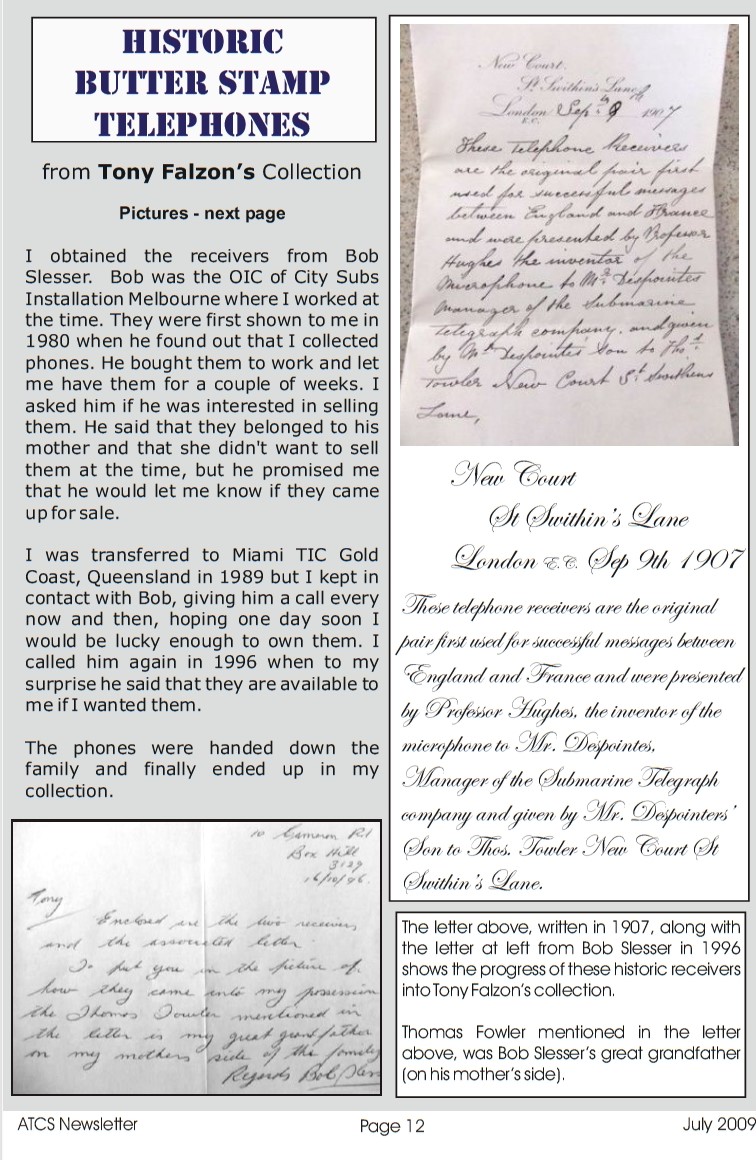 HISTORIC
BUTTER STAMP
TELEPHONES
from Tony Falzon's Collection
Pictures - next page
I obtained the receivers from Bob
Slesser. Bob was the OIC of City Subs
Installation Melbourne where I worked at
the time. They were first shown to me in
1980 when he found out that I collected
phones. He bought them to work and let
me have them for a couple of weeks. I
asked him if he was interested in selling
them. He said that they belonged to his
mother and that she didn't want to sell
them at the time, but he promised me
that he would let me know if they came
up for sale.
I was transferred to Miami TIC Gold
Coast, Queensland in 1989 but I kept in
contact with Bob, giving him a call every
now and then, hoping one day soon I
would be lucky enough to own them. I
called him again in 1996 when to my
surprise he said that they are available to
me if I wanted them.
The phones were handed down the
family and finally ended up in my
collection.
10 Cameron Rd
Box Hill
3129
16/10/96.
Tony
Enclosed are the two receivers
and the associated letter.
To put you in the picture of
how they came into my possession
the Thomas Towler mentioned in
the letter is my great grandfather
on my mothers side of the family
Regards Bob Sless
New Court.
St. Swithin's Lane
London E.C. Sep. 9th 1907
These telephone Receivers
are the original pair first
used for successful messages
between England and France
and were presented by Professor
Hughes the inventor of the
Microphone to Mr. Despointes
manager of the Submarine
Telegraph company, and given
by Mr. Despointes' Son to Thos.
Towler New Court St Swithens
Lane,
New Court
St Swithin's Lane
London E.C. Sep 9th 1907
These telephone receivers are the original
pair first used for successful messages between
England and France and were presented
by Professor Hughes, the inventor of the
microphone to Mr. Despointes,
Manager of the Submarine Telegraph
company and given by Mr. Despointers'
Son to Thos. Towler New Court St
Swithin's Lane.
The letter above, written in 1907, along with
the letter at left from Bob Slesser in 1996
shows the progress of these historic receivers
into Tony Falzon's collection.
Thomas Fowler mentioned in the letter
above, was Bob Slesser's great grandfather
(on his mother's side).
ATCS Newsletter
Page 12
July 2009